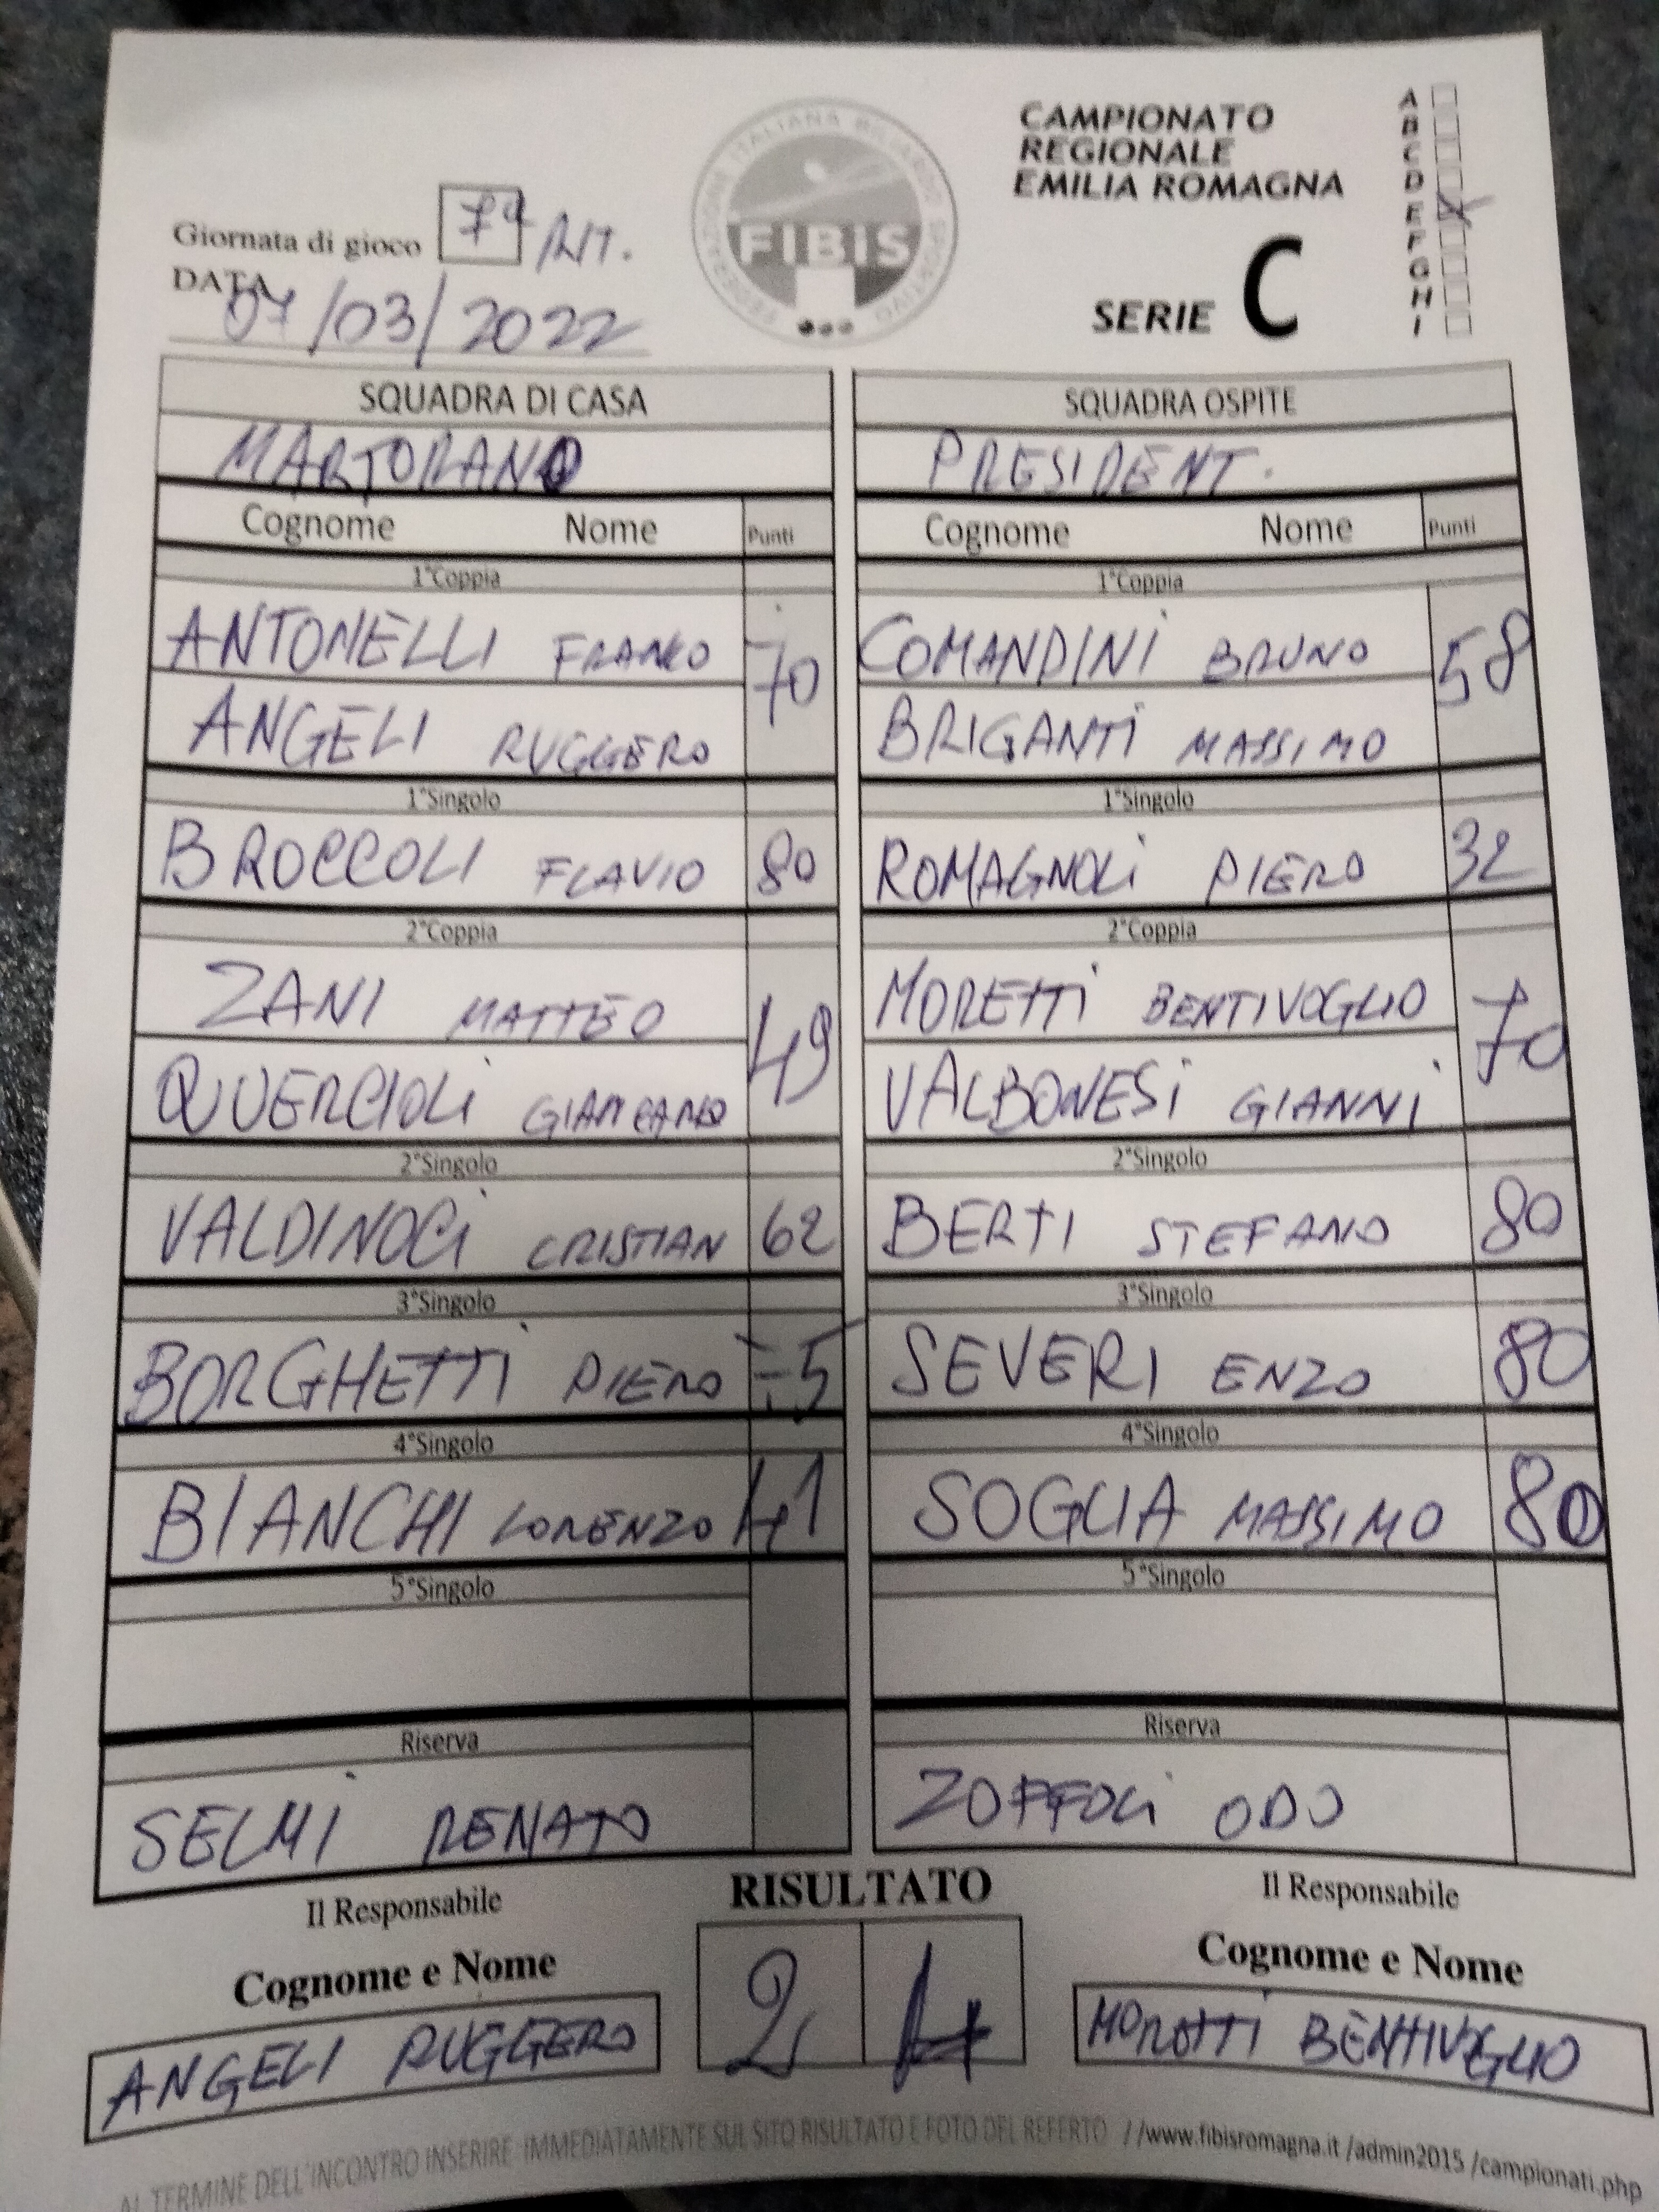 CAMPIONATO
REGIONALE
EMILIA ROMAGNA
SERIE C
A
B
C
D
E
F
G
H
I
FEDERAZIONE ITALIANA BILIARDO SPORTIVO
FIBIS
Giornata di gioco 7ª RIT.
DATA
07/03/2022
SQUADRA DI CASA SQUADRA OSPITE
MARTORANO PRESIDENT.
Cognome Nome Punti Cognome Nome Punti
1°Coppia 1°Coppia
ANTONELLI FRANCO 70 COMANDINI BRUNO 58
ANGELI RUGGERO BRIGANTI MASSIMO
1°Singolo 1°Singolo
BROCCOLI FLAVIO 80 ROMAGNOLI PIERO 32
2°Coppia 2°Coppia
ZANI MATTEO 49 MORETTI BENTIVOGLIO 70
QUERCIOLI GIANCARLO VALBONESI GIANNI
2°Singolo 2°Singolo
VALDINOCI CRISTIAN 62 BERTI STEFANO 80
3°Singolo 3°Singolo
BORGHETTI PIERO SEVERI ENZO 80
4°Singolo 4°Singolo
BIANCHI LORENZO 41 SOGLIA MASSIMO 80
5°Singolo 5°Singolo
Riserva Riserva
SELMI RENATO ZOFFOLI ODO
Il Responsabile RISULTATO Il Responsabile
Cognome e Nome 2 4 Cognome e Nome
ANGELI RUGGERO MORETTI BENTIVOGLIO
AL TERMINE DELL'INCONTRO INSERIRE IMMEDIATAMENTE SUL SITO RISULTATO E FOTO DEL REFERTO //www.fibisromagna.it /admin2015 /campionati.php